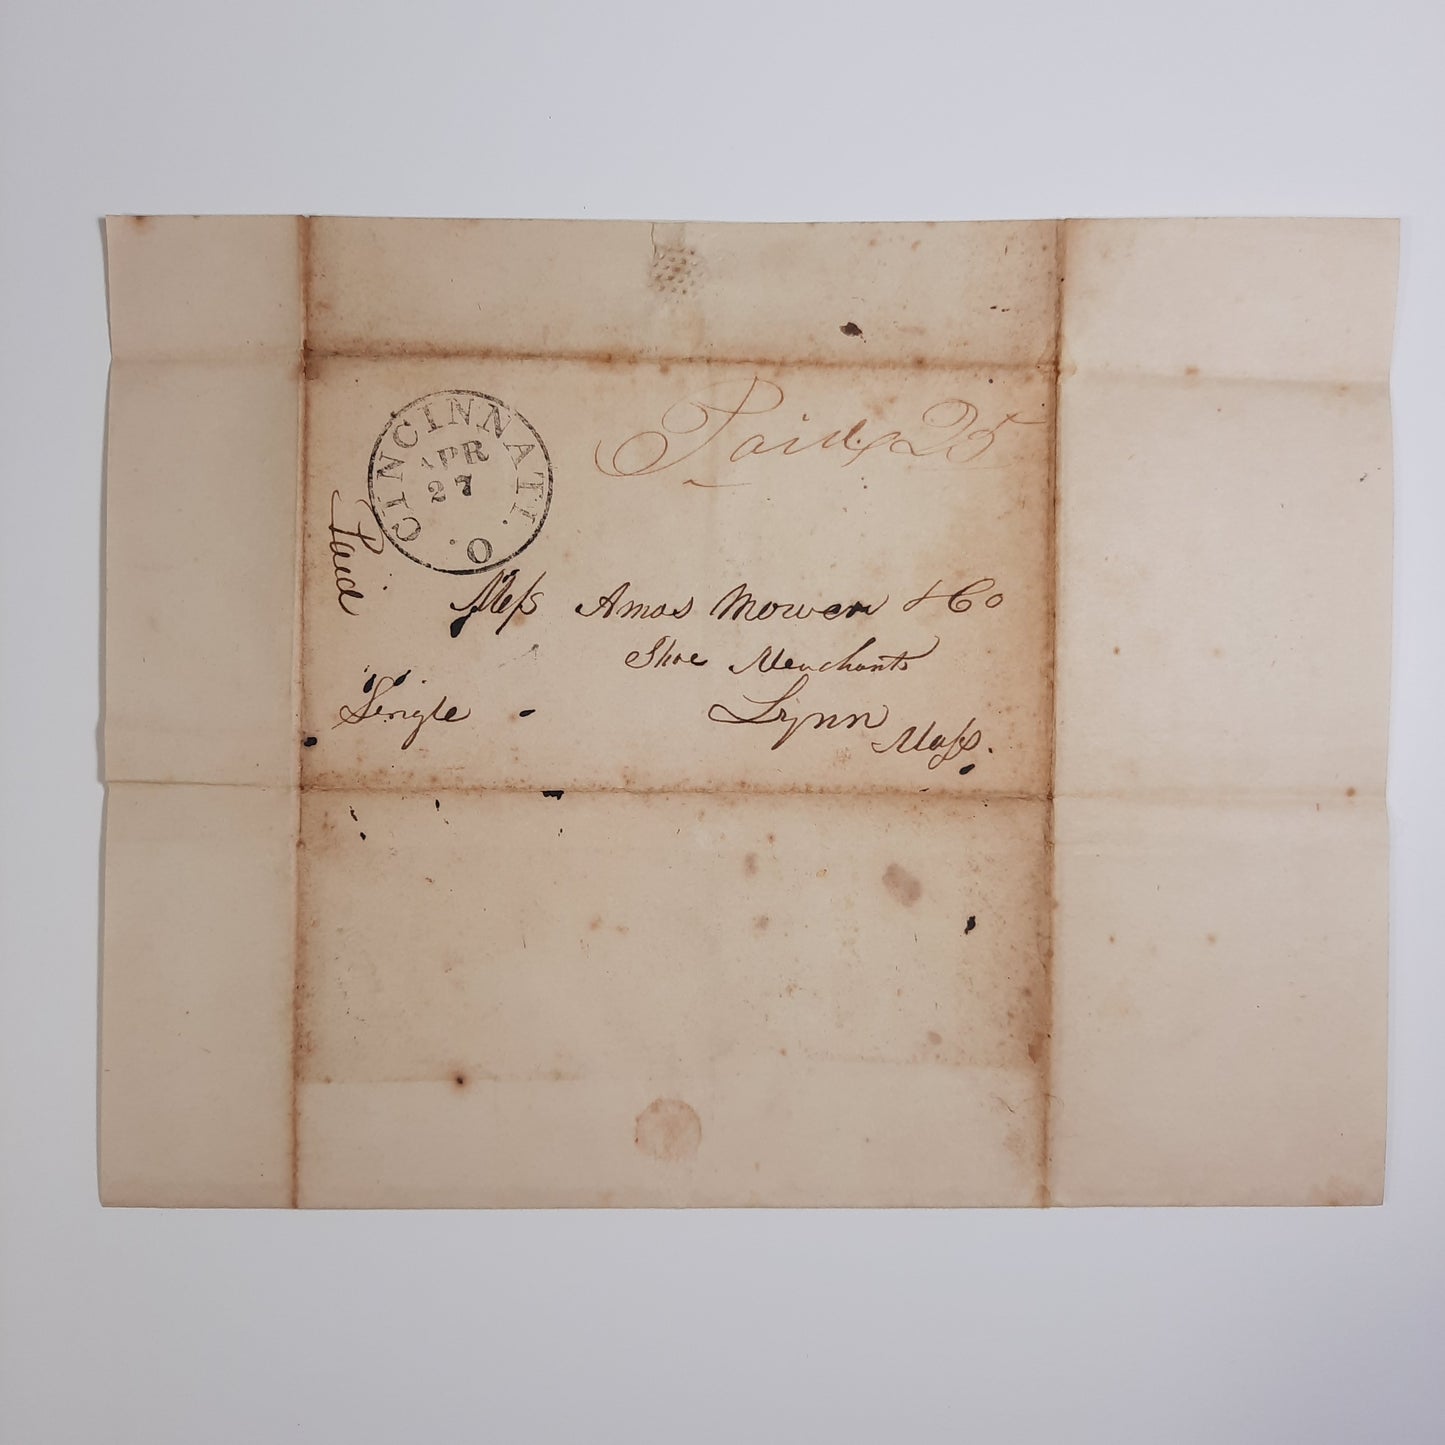 CINCINNATI. O.
APR
27
Paid 25
Paid
Mess Amos Mower & Co
Shoe Merchants
Single
Lynn
Mass.